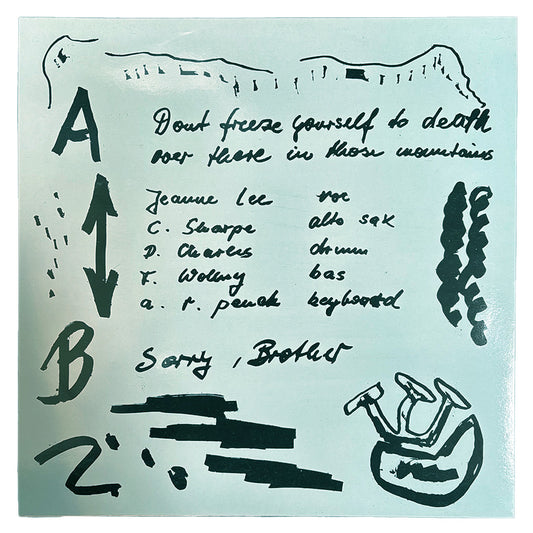 A
Dont freeze yourself to death
over there in those mountains
Jeanne Lee voc
C. Sharpe alto sax
D. Charles drum
F. Wollny bas
a. r. penck keyboard
B
Sorry, Brother
2